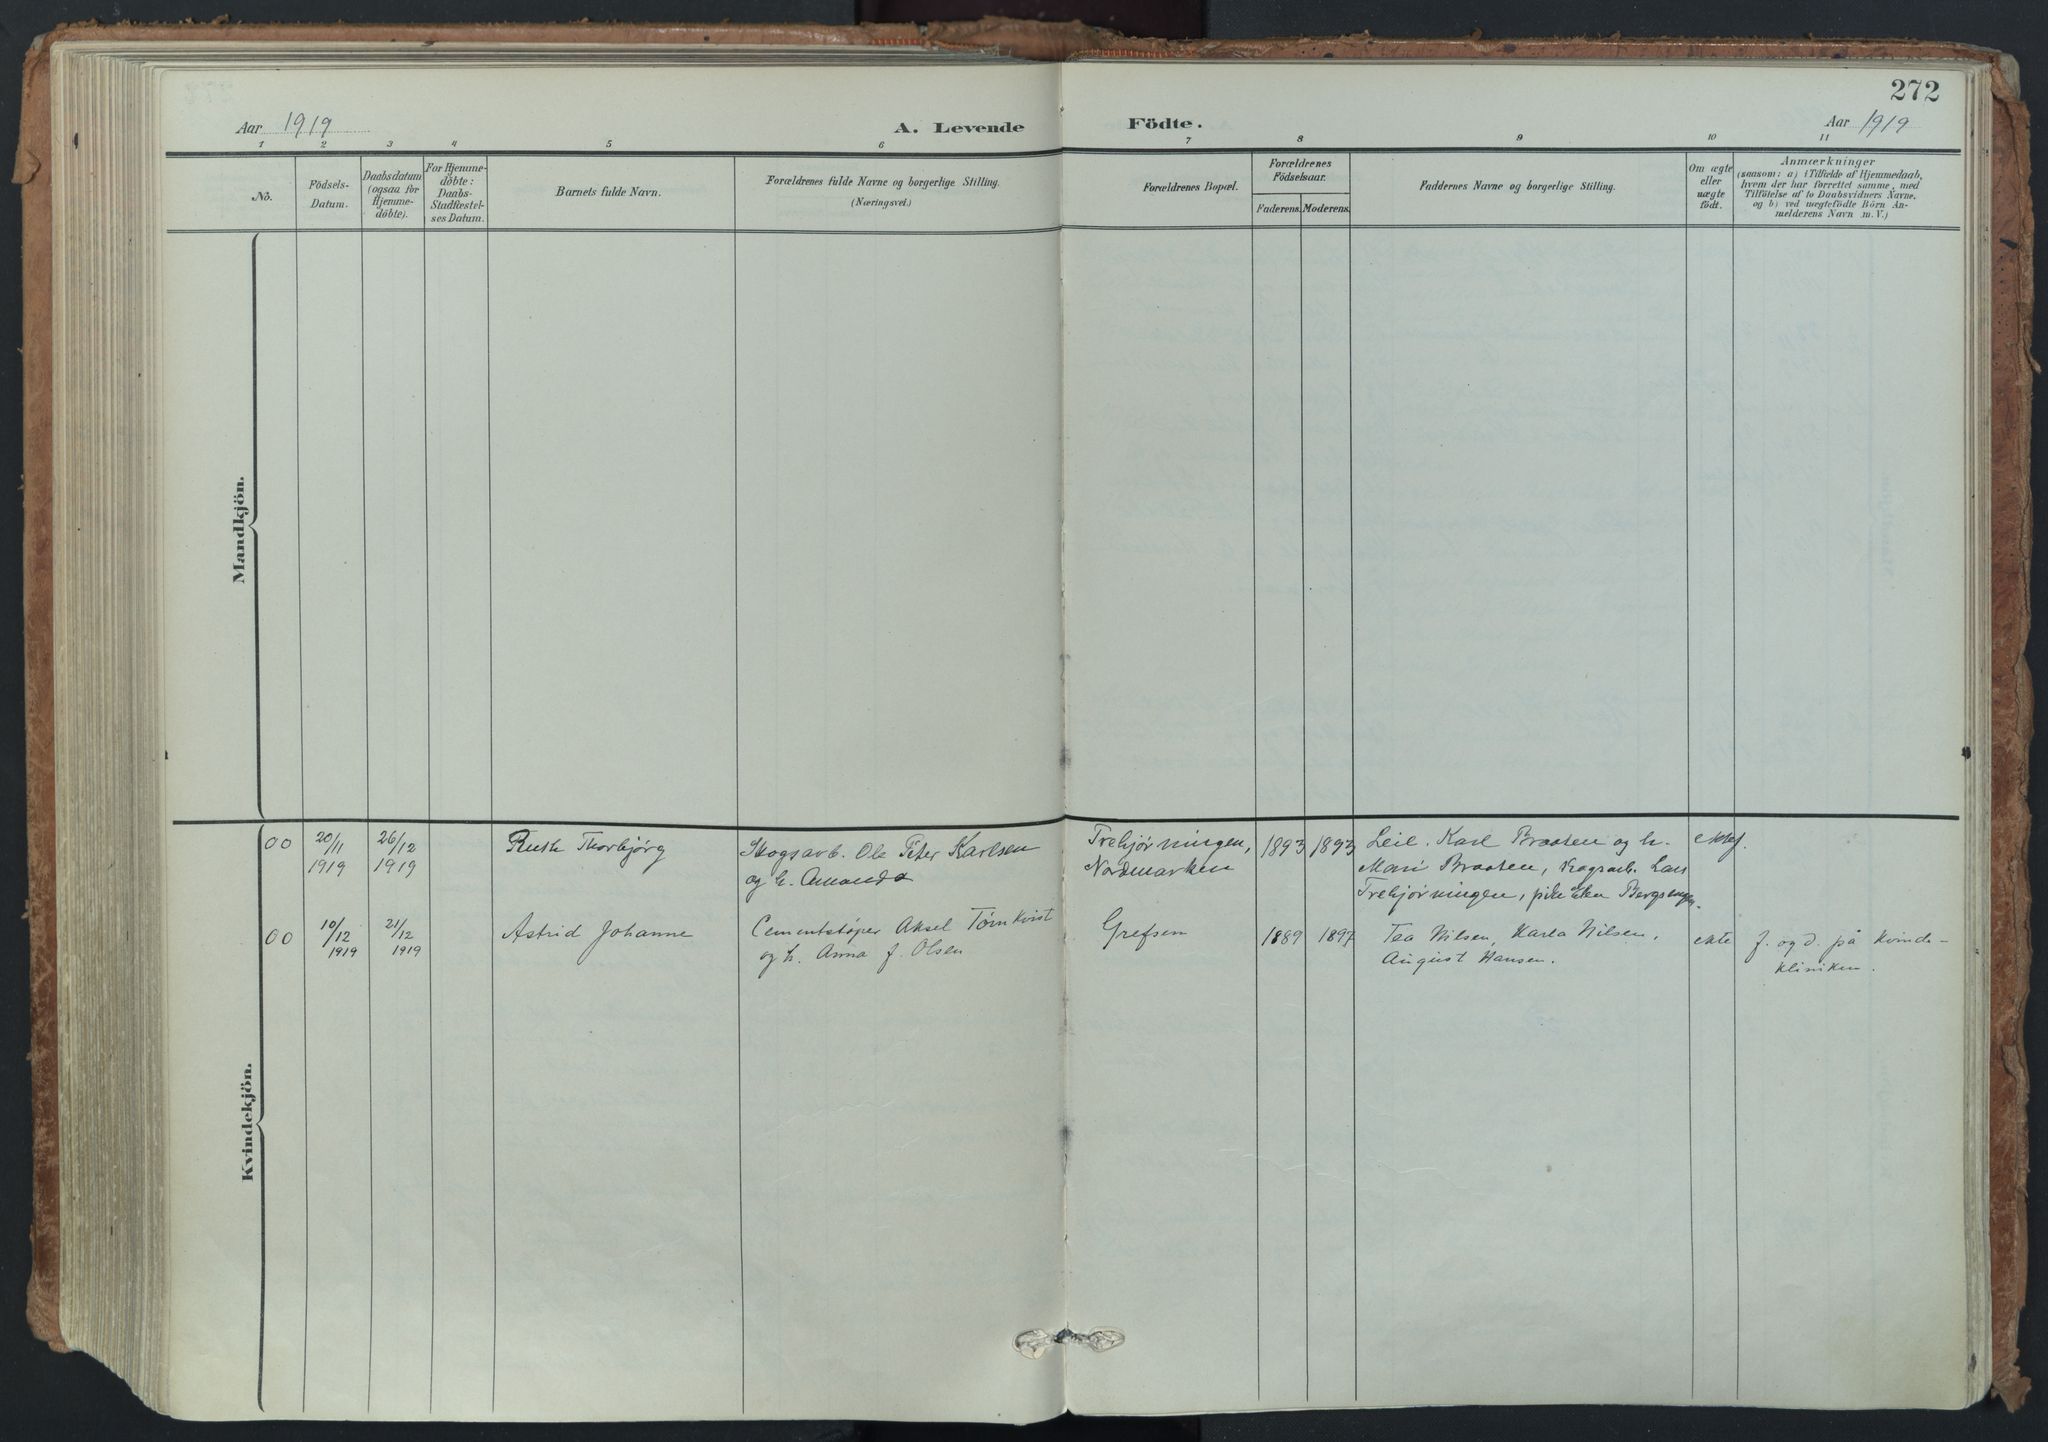 272
Aar 1919
A. Levende Födte.
Aar 1919
1 2 3 4 5 6 7 8 9 10 11
No.
Födsels-
Datum.
Daabsdatum
(ogsaa for
Hjemme-
döbte).
For Hjemme-
döbte:
Daabs-
Stadfæstel-
ses Datum.
Barnets fulde Navn.
Forældrenes fulde Navne og borgerlige Stilling.
(Næringsvei.)
Forældrenes Bopæl.
Forældrenes
Födselsaar.
Faderens. Moderens.
Faddernes Navne og borgerlige Stilling.
Om ægte
eller
uægte
födt.
Anmærkninger
(saasom: a) i Tilfælde af Hjemmedaab,
hvem der har forrettet samme, med
Tilföielse af to Daabsvidners Navne.
og b) ved uægtefödte Börn An-
melderens Navn m. V.)
Mandkjön.
Kvindekjön.
00 20/11 1919 26/12 1919 Ruth Thorbjörg
Skogsarb. Ole Peter Karlsen
og h. Amanda
Trehjørningen,
Nordmarken
1893 1893
Leil. Karl Braaten og h.
Mari Braaten, skogsarb. Lars
Trehjørningen, pike Ellen Bergsengen.
ektef.
00 10/12 1919 21/12 1919 Astrid Johanne
Cementstøper Aksel Törnkvist
og h. Anna f. Olsen
Grefsen
1889 1897
Tea Nilsen, Karla Nilsen,
August Hansen.
ekte
f. og d. på Kvinde-
kliniken.